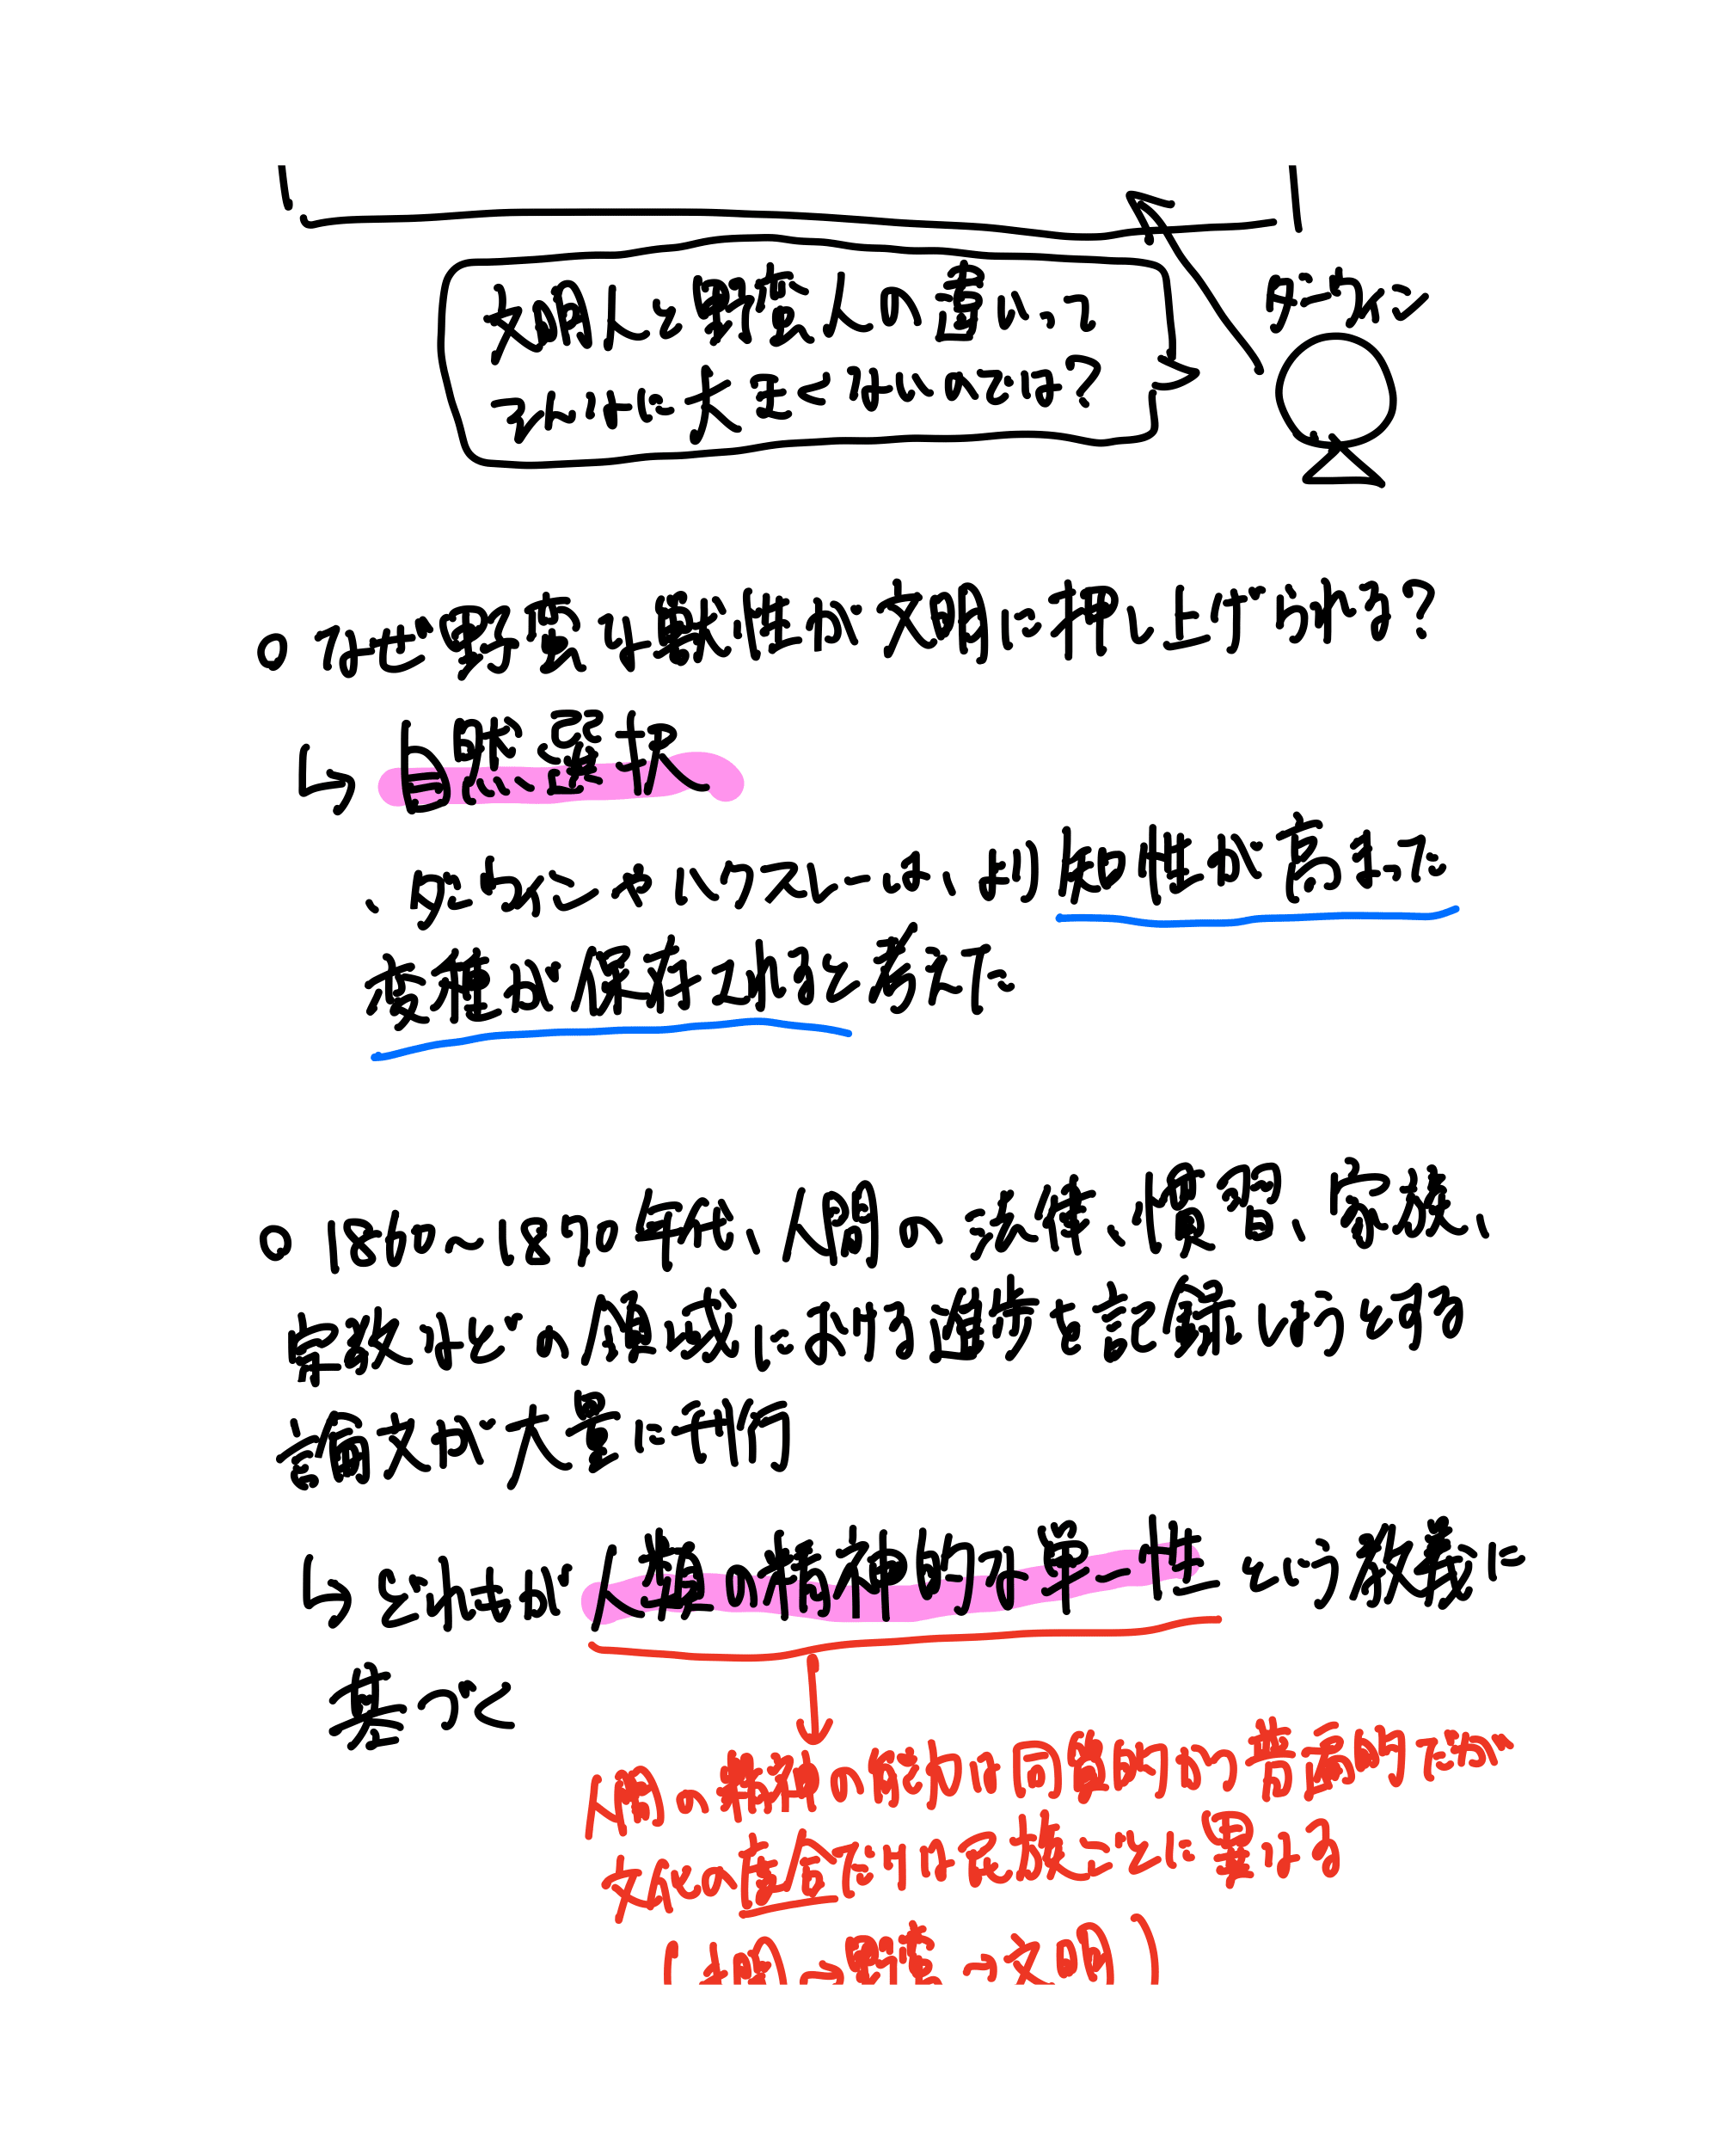 文明人と野蛮人の違いって
それほど大きくないのでは?
ダーウィン
○ なぜ野蛮な獣性が文明に押し上げられる?
↳ 自然選択
、ダーウィンやハクスレーは、より知性が高まった
変種が保存されると考えた
○ 1860〜1890年代、人間の法律、慣習、家族、
宗教などの全域における進歩を記録しようとする
論文が大量に刊行
↳ どれもが人類の精神的な単一性という教義に
基づく
↓
人間の精神の能力は同質的かつ普遍的だが
文化の度合だけは民族ごとに異なる
(未開→野蛮→文明)